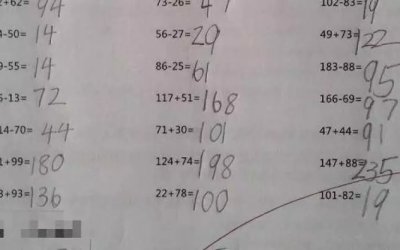 2+62= 94 73-26= 47 102-83= 19
4-50= 14 56-27= 29 49+73= 122
9-55= 14 86-25= 61 183-88= 95
5-13= 72 117+51= 168 166-69= 97
14-70= 44 71+30= 101 47+44= 91
1+99= 180 124+74= 198 147+88= 235
3+93= 136 22+78= 100 101-82= 19